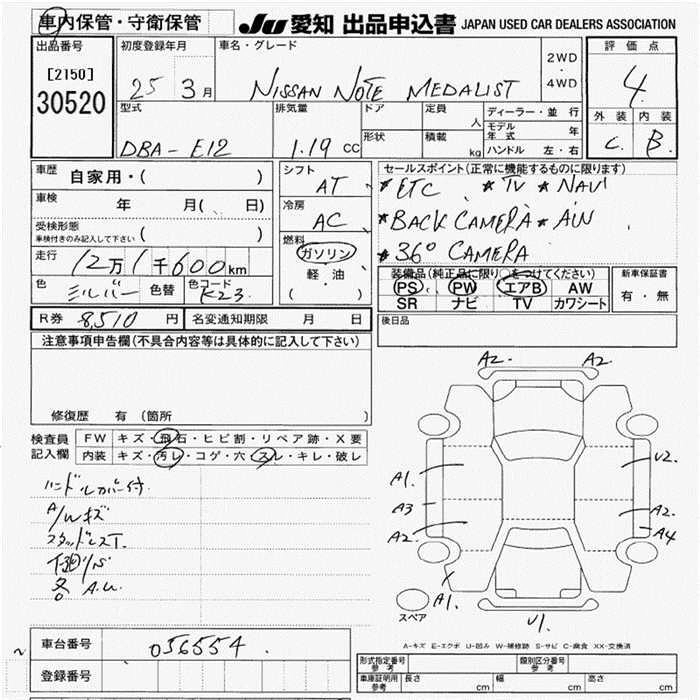 車内保管・守衛保管
JU 愛知 出品申込書 JAPAN USED CAR DEALERS ASSOCIATION
出品番号
[2150]
30520
初度登録年月
25 3月
車名・グレード
NISSAN NOTE MEDALIST
2WD
4WD
評価点
4
外装 内装
C. B.
型式
DBA-E12
排気量
1.19 CC
ドア
形状
定員
人
積載
kg
ディーラー・並行
モデル年式 年
ハンドル 左・右
車歴
自家用・( )
車検
年 月( 日)
受検形態
車検付きのみ記入して下さい ( )
走行
12万1千600km
色
シルバー
色替
色コード
K23
シフト
AT
冷房
AC
燃料
ガソリン
軽・油
( )
セールスポイント(正常に機能するものに限ります)
* ETC * TV * NAVI
* BACK CAMERA * A/W
* 360 CAMERA
装備品(純正品に限り○をつけてください)
PS PW エアB AW
SR ナビ TV カワシート
新車保証書
有・無
R券 8510 円
名変通知期限 月 日
後日品
注意事項申告欄(不具合内容等は具体的に記入して下さい)
修復歴 有 (箇所 )
検査員
記入欄
FW キズ・飛石・ヒビ割・リペア跡・X要
内装 キズ・汚レ・コゲ・穴・スレ・キレ・破レ
ハンドルカバー付
A/Wキズ
スタッドレスT.
各 A.U.
A2. A2.
A1. U2.
A3 A2.
A2. A4
A1.
U1.
スペア
A-キズ E-エクボ U-凹み W-補修跡 S-サビ C-腐食 XX-交換済
車台番号
056554
登録番号
形式指定番号
参考
類別区分番号
参考
車庫証明用
参考
長さ cm 幅 cm 高さ cm